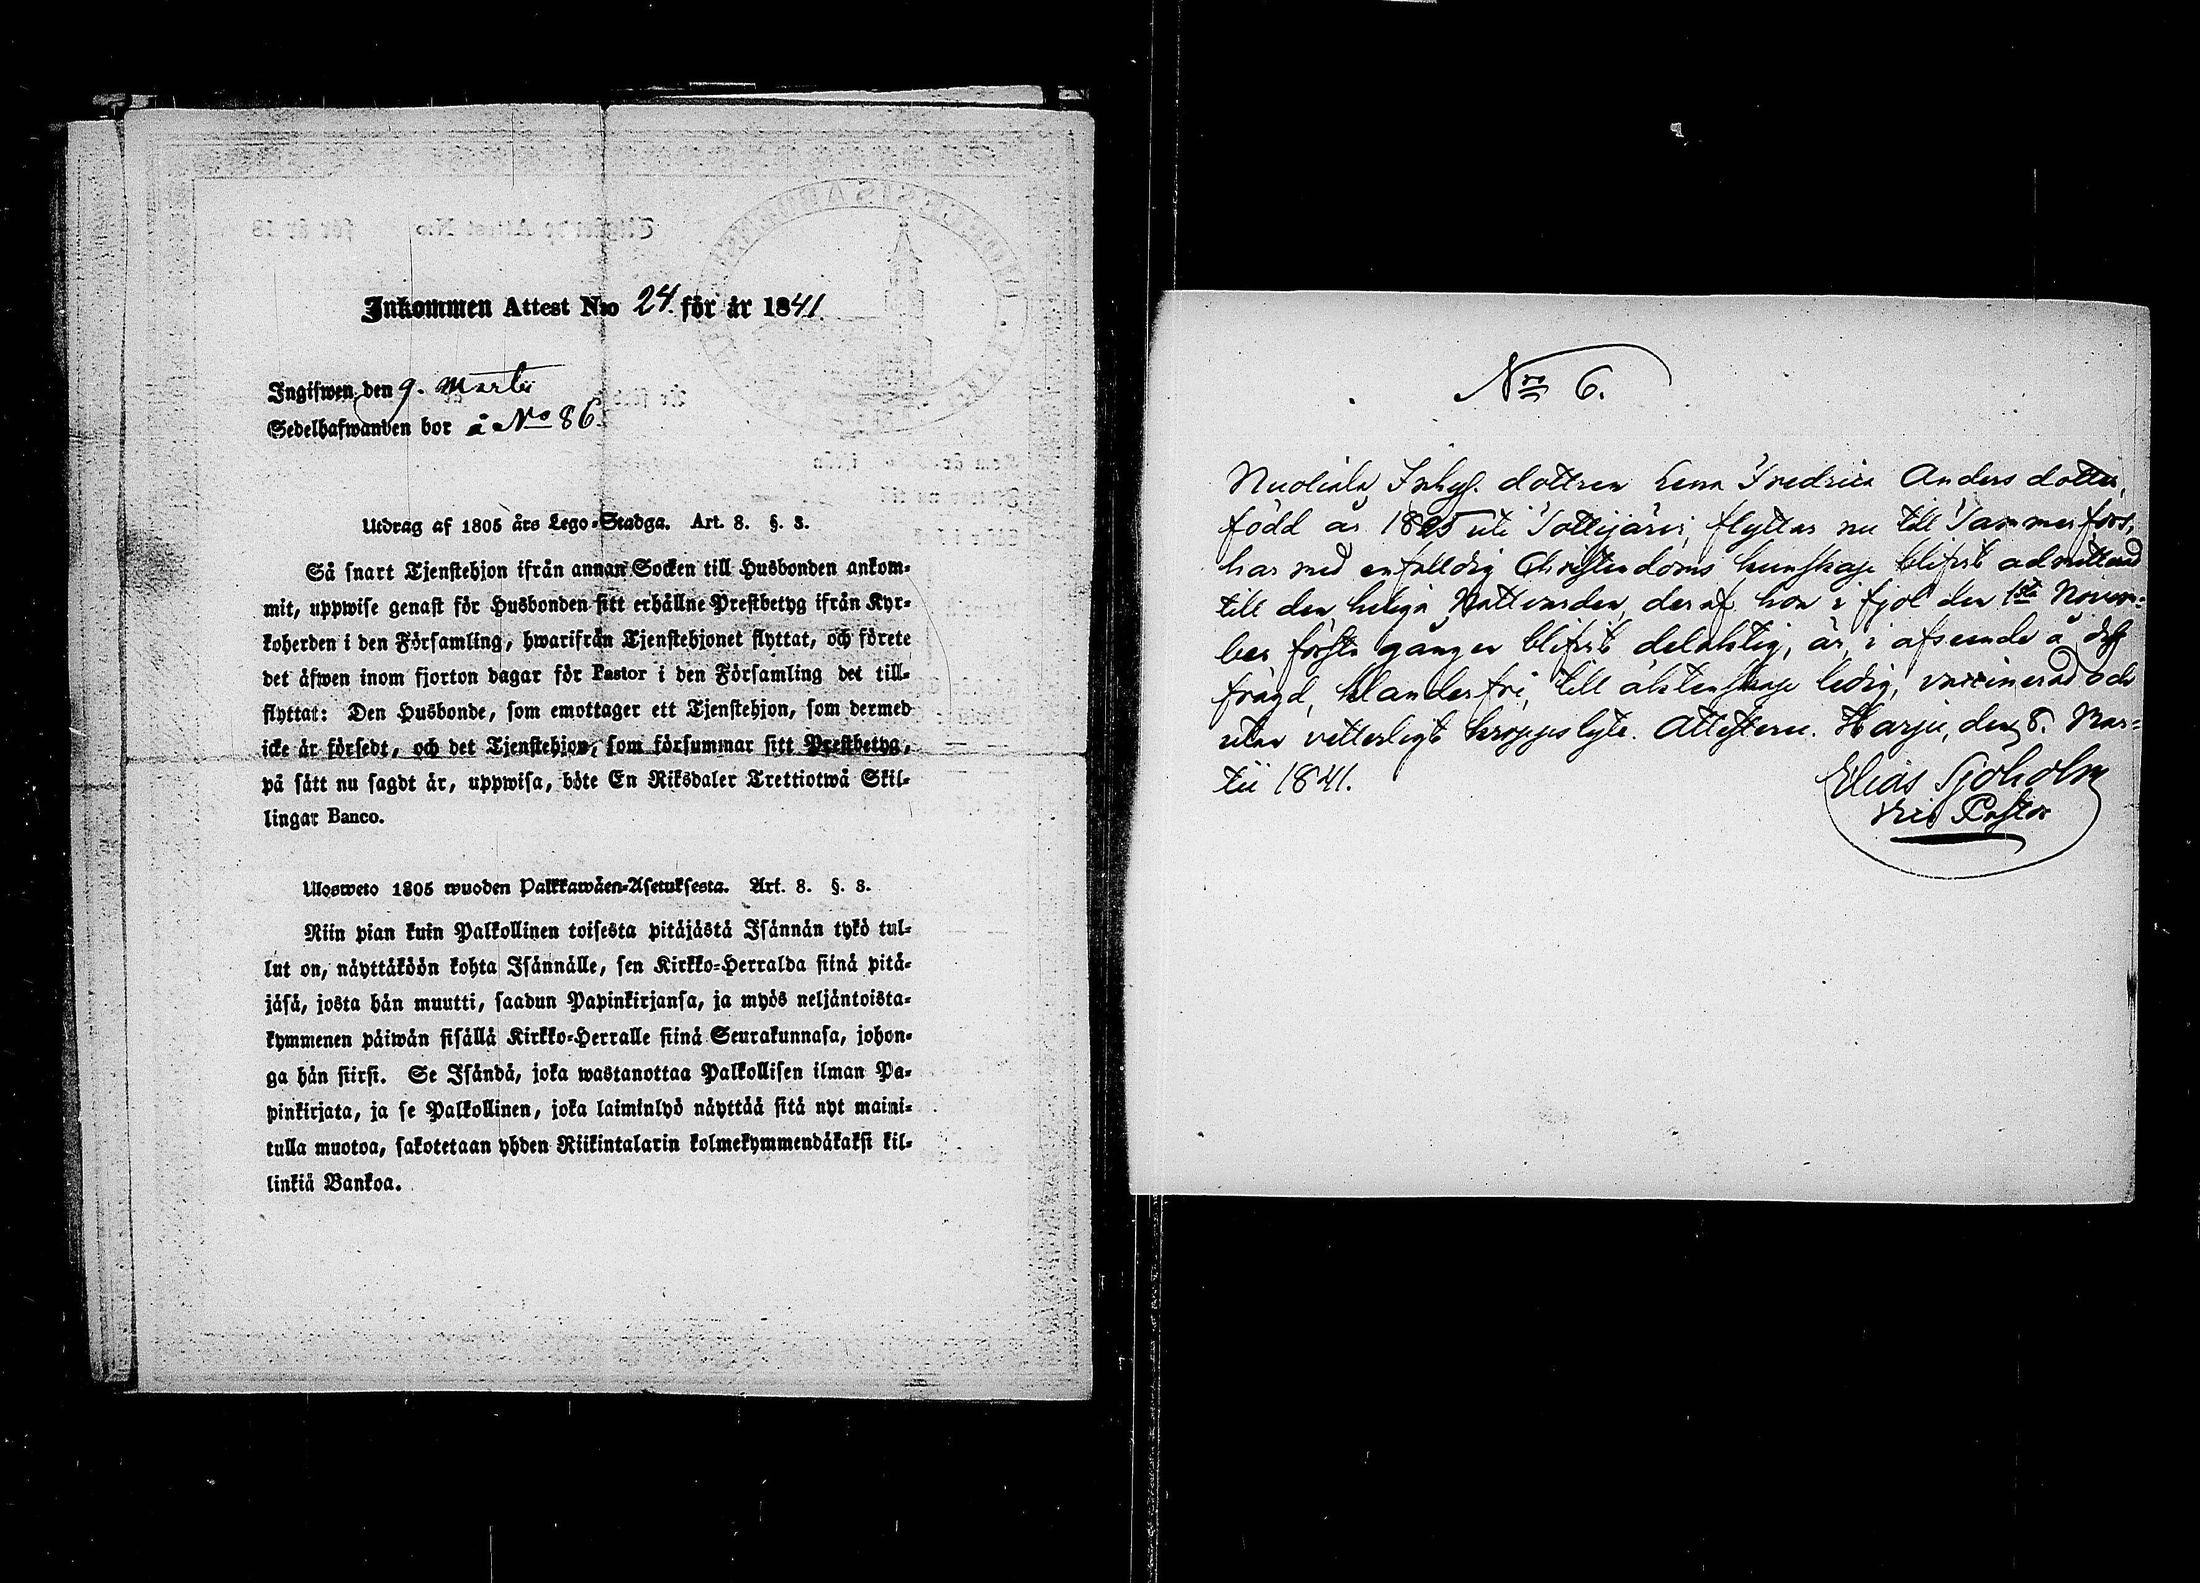 Inkommen Attest N:o 24. för år 1841.
Ingifwen den 9. Martii
Sedelhafwanden bor å No 86.
Utdrag af 1805 års Lego-Stadga. Art. 8. §. 3.
Så snart Tjenstehjon ifrån annan Socken till Husbonden ankom-
mit, uppwise genast för Husbonden sitt erhållne Prestbetyg ifrån Kyr-
koherden i den Församling, hwarifrån Tjenstehjonet flyttat, och förete
det äfwen inom fjorton dagar för Pastor i den Församling det till-
flyttat: Den Husbonde, som emottager ett Tjenstehjon, som dermed
icke är försedt, och det Tjenstehjon, som försummar sitt Prestbetyg,
på sätt nu sagdt är, uppwisa, böte En Riksdaler Trettiotwå Skil-
lingar Banco.
Ulosweto 1805 wuoden Palkkawäen-Asetuksesta. Art. 8. §. 3.
Niin pian kuin Palkollinen toisesta pitäjästä Isännän tykö tul-
lut on, näyttäköön kohta Isännälle, sen Kirkko-Herralda siinä pitä-
jäsä, josta hän muutti, saadun Papinkirjansa, ja myös neljäntoista-
kymmenen päiwän sisällä Kirkko-Herralle siinä Seurakunnasa, johon-
ga hän siirsi. Se Isändä, joka wastanottaa Palkollisen ilman Pa-
pinkirjata, ja se Palkollinen, joka laiminlyö näyttää sitä nyt maini-
tulla muotoa, sakotetaan yhden Riikintalarin kolmekymmendäkaksi kil-
linkiä Bankoa.
Nro 6.
Nuoliala Inhys. dottren Lena Fredrica Anders dotter,
född år 1825 uti Tottijärvi, flyttar nu till Tammerfors,
har med enfalldig Christendoms kunskap blifvit admitterad
till den heliga Nattvarden, deraf hon i fjol den 1sta Novem-
ber första gången blifvit delaktig, är, i afseende å dess
frägd, klanderfri, till äktenskap ledig, vaccinerad och
utan vetterligt kroppslyte. Attesterar. Harju, den 8. Mar-
tii 1841.
Elias Sjöholm
Vice Pastor